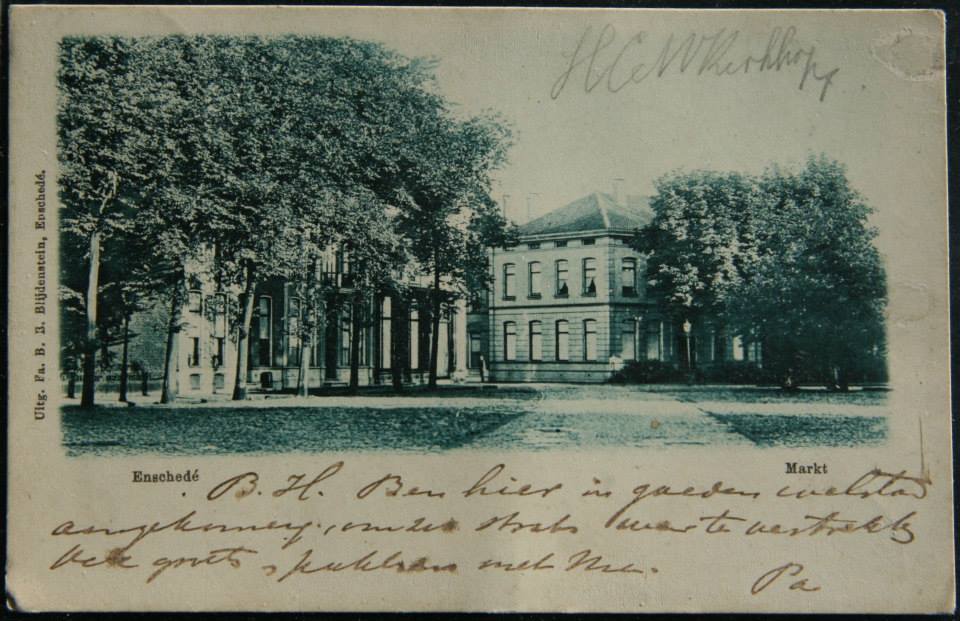 H C W Kerkhoff
Uitg. Fa. B. J. Blijdenstein, Enschedé.
Enschedé
Markt
B. H. Ben hier in goeden welstad
aangekomen, om straks weer te vertrekk
Vele groets met Ma.
Pa